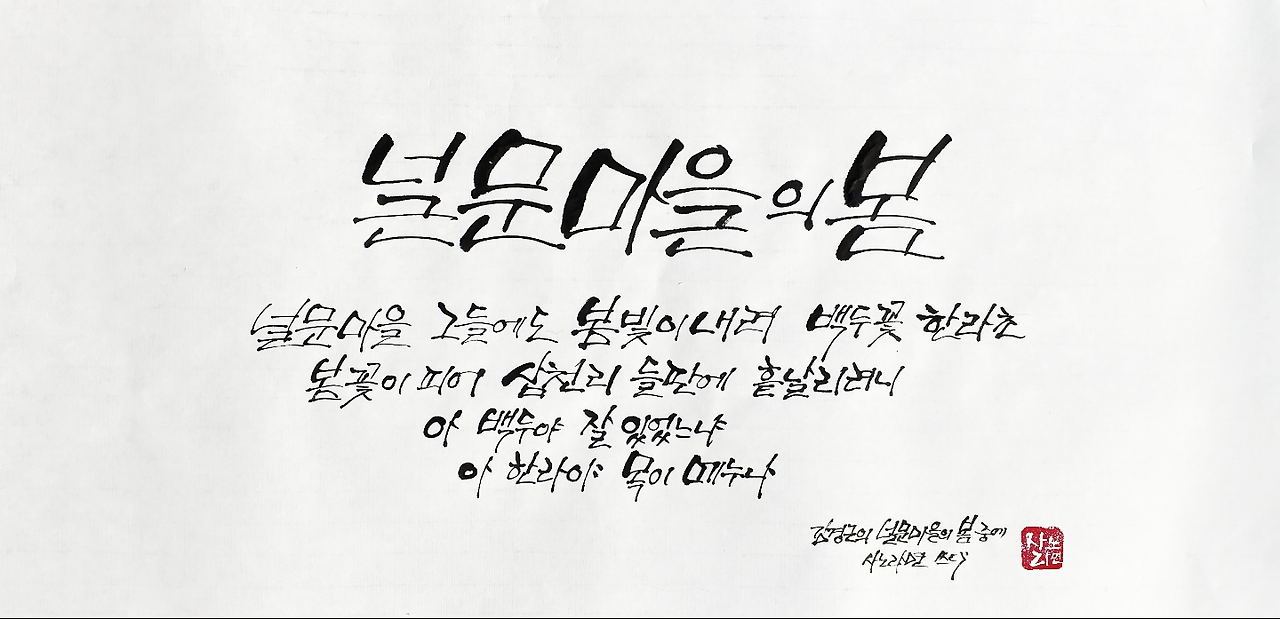 널문마을의 봄
널문마을 그들에도 봄빛이 내려 백두꽃 한라초
봄꽃이 피어 삼천리 들판에 흩날리려니
아 백두야 잘 있었느냐
아 한라야 목이 메누나
김경근의 널문마을의 봄 중에
사노라면 쓰다
사노라면